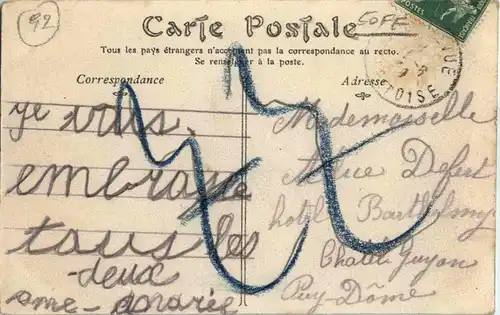 92
COFF
Carte Postale
Tous les pays étrangers n'acceptent pas la correspondance au recto.
Se renseigner à la poste.
Correspondance
Adresse
je vous
embrasse
tous les
-deux
Mademoiselle
Alice Defert
hôtel Barthélmy
Chatel Guyon
Puy-Dôme
OISE